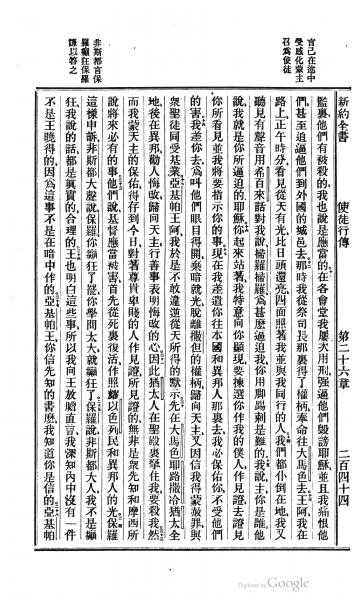 新約全書 使徒行傳 第二十六章 二百四十四
言己在途中
受感化蒙主
召爲使徒
非斯都言保
羅癲狂保羅
謹以答之
監裏他們有被殺的我也說是應當的在各會堂我屢次用刑強逼他們毀謗耶穌並且我痛恨他
們甚至迫逼他們到外國的城邑去那時我從祭司長那裏得了權柄奉命往大馬色去王阿我在
路上正午時分看見從天有光比日頭還亮四面照著我並與我同行的人我們都仆倒在地我又
聽見有聲音用希百來話對我說掃羅掃羅爲甚麼逼迫我你用脚踢刺是難的我說主你是誰他
說我就是你所逼迫的耶穌你起來站著我特意向你顯現要揀選你作我的僕人作見證去證見
你所看見並我將要指示你的事現在我差遣你往本國和異邦人那裏去我必保佑你不受他們
的害我差你去爲叫他們眼目得開棄暗就光脫離撒但的權柄歸向天主又因信我得蒙赦罪與
衆聖徒同受基業亞基帕王阿我於是不敢違逆從天所得的默示先在大馬色耶路撒冷猶太全
地後在異邦勸人悔改歸向天主行善事表明悔改的心因此猶太人在聖殿裏拏住我要殺我然
而我蒙天主的保佑得存到今日對著尊貴卑賤的人作見證所見證的無非是衆先知和摩西所
說將來必有的事他們說基督應當被害首先從死裏復活作照臨以色列民和異邦人的光保羅
這樣申訴非斯都大聲說保羅你癲狂了罷你學問太大就癲狂了保羅說非斯都大人我不是癲
狂我說的話都是眞實的合理的王也明白這些事所以我向王放膽直言我深知內中沒有一件
不是王曉得的因爲這事不是在暗中作的亞基帕王你信先知的書麼我知道你是信的亞基帕
Digitized by Google